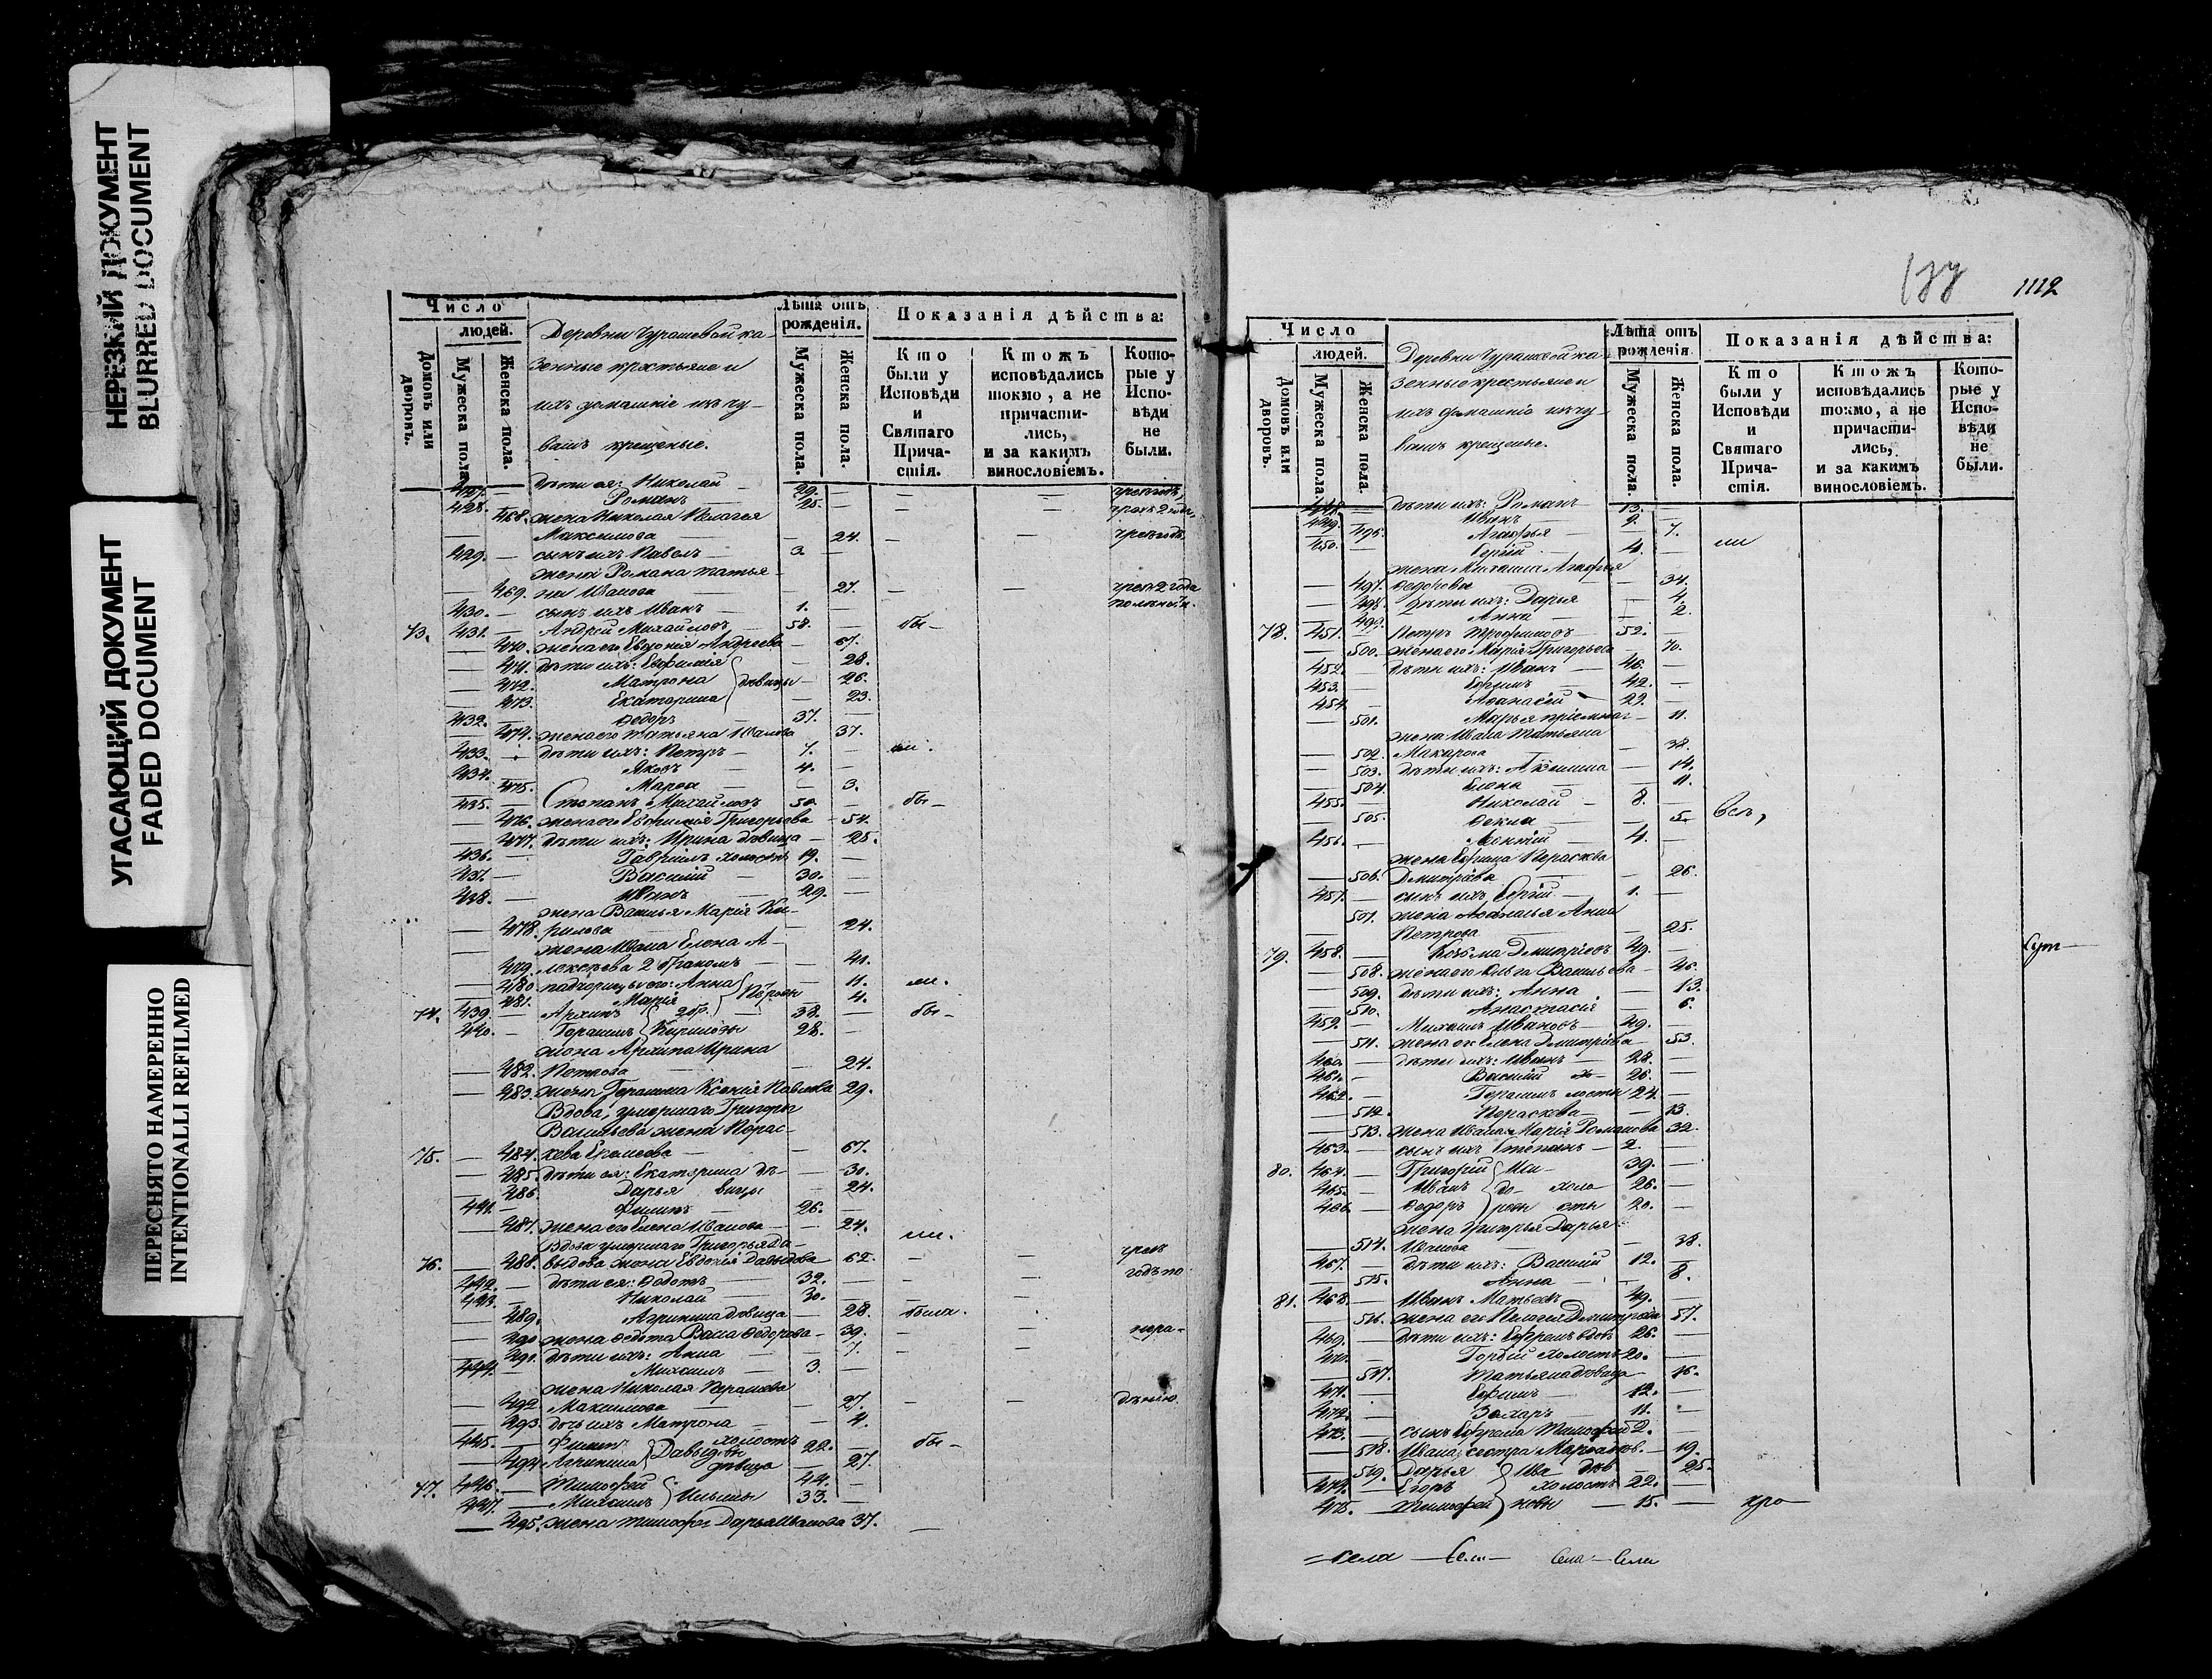 НЕРЕЗКИЙ ДОКУМЕНТ
BLURRED DOCUMENT
УГАСАЮЩИЙ ДОКУМЕНТ
FADED DOCUMENT
ПЕРЕСНЯТО НАМЕРЕННО
INTENTIONALLI REFILMED
Число
людей.
Домовъ или дворовъ.
Мужеска пола.
Женска пола.
Деревни Чурашевой ка-
зенные крестьяне и
ихъ домашніе изъ чу-
вашъ крещеные.
Лѣта отъ рожденія.
Мужеска пола.
Женска пола.
Показанія дѣйства:
Кто были у Исповѣди и Святаго Прича-стія.
Ктожъ исповѣдались токмо, а не причасти-лись, и за какимъ винословіемъ.
Кото-рые у Испо-вѣди не были.
427. — дѣти ея: Николай — 29. —
428. — Романъ — 25. —
468. жена Николая Пелагея
Максимова — 24. —
429. — сынъ ихъ Павелъ — 3. —
жена Романа Татья-
469. на Иванова — 27. —
430. — сынъ ихъ Иванъ — 1.
73. 431. — Андрей Михайловъ — 58. — бы-
470. жена его Евдокія Андреева — 67.
471. дѣти ихъ: Евфимія — 28.
472. Матрона дѣвицы — 26.
473. Екатерина — 23.
432. — Ѳедоръ — 37. —
474. жена его Татьяна Иванова 37.
433. дѣти ихъ: Петръ — 7. — ли.
434. Яковъ — 4. —
475. Марѳа — 3.
435. — Степанъ Михайловъ 50. — бы-
476. жена его Евфимія Григорьева — 54.
477. дѣти ихъ: Ирина дѣвица — 25.
436. — Гавріилъ холостъ 19. —
437. — Василій — 30. —
438. — Иванъ — 29. —
жена Василья Марія Ки-
478. рилова — 24.
жена Ивана Елена А-
479. лексѣева 2 бракомъ — 41.
480. падчерицы его: Анна — 11. ли.
481. Марія — 4.
74. 439. — Архипъ — 33. — бы-
440. — Герасимъ Кириловы 28. —
жена Архипа Ирина
482. Петрова — 24.
483. жена Герасима Ксенія Павлова 29.
Вдова, умершаго Григорья
Васильева жена Парас-
75. — 484. кева — 67.
485. дѣти ея: Екатерина дѣ- — 30.
486. Дарья вицы — 24.
441. — Филипъ — 26. —
487. жена его Елена Иванова — 24.
Вдова умершаго Григорья Да- ли.
76. — 488. выдова жена Евдокія Давыдова 62. — чрезъ
442. — дѣти ея: Ѳедотъ — 32. — годъ по
443. Николай — 30. —
489. Агрипина дѣвица — 28. была.
490. жена Ѳедота Васса Ѳедорова — 39. — нера-
491. дѣти ихъ: Анна — 7. —
444. — Михаилъ — 3. —
жена Николая
492. Максимова — 27. — дѣнію.
493. дочь ихъ Матрона — 4.
445. — Филипъ холостъ 22. — бы-
494. Агрипина Давыдовы дѣвица — 27.
77. 446. — Тимофей — 44. —
447. — Михаилъ Ильины 33. —
— 495. жена Тимофея Дарья Иванова 37. —
1112
Число
людей.
Домовъ или дворовъ.
Мужеска пола.
Женска пола.
Деревни Чурашевой ка-
зенные крестьяне и
ихъ домашніе изъ чу-
вашъ крещеные.
Лѣта отъ рожденія
Мужеска пола.
Женска пола.
Показанія дѣйства:
Кто были у Исповѣди и Святаго Прича-стія.
Ктожъ исповѣдались токмо, а не причасти-лись, и за какимъ винословіемъ.
Кото-рые у Испо-вѣди не были.
448. — дѣти ихъ: Романъ 13. —
449. — Иванъ — 9. —
496. Агафья — 7.
450. — Сергій — 4. — ли
жена Михаила Агафья
497. Ѳедорова — 34.
498. дѣти ихъ: Дарья — 4.
499. Анна — 2.
78. 451. — Петръ Трофимовъ — 52. —
500. жена его Марія Григорьева 70.
452. — дѣти ихъ: Иванъ — 46. —
453. — Ефимъ — 42. —
454. — Аѳанасій — 27. —
501. Марья — 11.
жена Ивана Татьяна
502. Макарова — 38.
503. дѣти ихъ: Акилина — 14.
504. Елена — 11.
455. — Николай — 8. —
505. Ѳекла — 5.
456. — Леонтій — 4. —
жена Ефима Параскева
506. Дмитріева — 26.
457. — сынъ ихъ Сергій — 1. —
507. жена Аѳанасья Анна
Петрова — 25.
79. 458. — Козьма Дмитріевъ 49. —
508. жена его Ольга Васильева — 46.
509. дѣти ихъ: Анна — 13.
510. Анастасія — 6.
459. — Михаилъ Ивановъ — 49. —
511. жена ег Елена Дмитріева — 53.
460. — дѣти ихъ: Иванъ — 28. —
461. — Василій хо- 26. —
462. — Герасимъ лосты 24. —
512. Параскева — 13.
513. жена Ивана Марія Романова 32.
463. — сынъ ихъ Степанъ — 2. —
80. 464. — Григорій Ѳи- 39. —
465. — Иванъ до- холо 26. —
466. — Ѳедоръ ровы сты 20. —
жена Григорья Дарья
514. Иванова — 38.
467. — дѣти ихъ: Василій 12. —
515. Анна — 8.
81. 468. — Иванъ Матвѣевъ 49. —
516. жена его Пелагея Дмитріева 57.
469. — дѣти ихъ: Ефремъ вдов 26. —
470. — холостъ 20. —
517. Татьяна дѣвица 16.
471. — Ефимъ — 12. —
472. — Захаръ — 11. —
473. — сынъ Ефрема Тимофей 2. —
518. Ивана сестра — 19.
519. Дарья Ива дѣв — 25.
474. — Егоръ холостъ 22. —
475. — Тимофей новы — 15. —